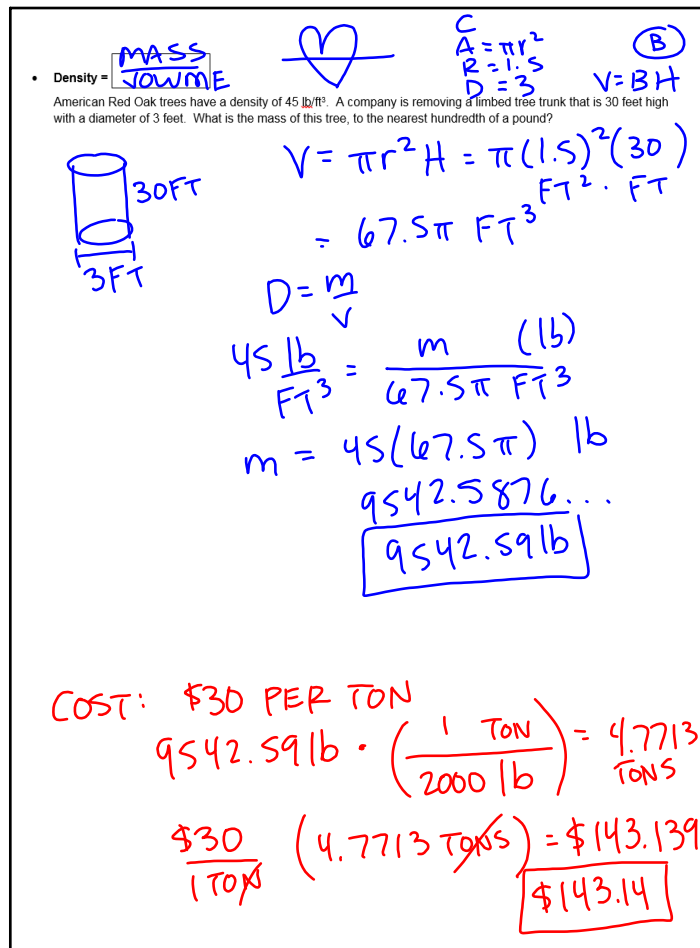 C
MASS
A = πr²
B
R = 1.5
• Density = VOLUME
D = 3
V = BH
American Red Oak trees have a density of 45 lb/ft³. A company is removing a limbed tree trunk that is 30 feet high
with a diameter of 3 feet. What is the mass of this tree, to the nearest hundredth of a pound?
V = πr²H = π(1.5)²(30)
30FT
FT² · FT
= 67.5π FT³
3FT
D = m/v
45 lb/FT³ = m (lb)/67.5π FT³
m = 45(67.5π) lb
9542.5876...
9542.59 lb
COST: $30 PER TON
9542.59 lb · (1 TON/2000 lb) = 4.7713 TONS
$30/1 TON (4.7713 TONS) = $143.139
$143.14